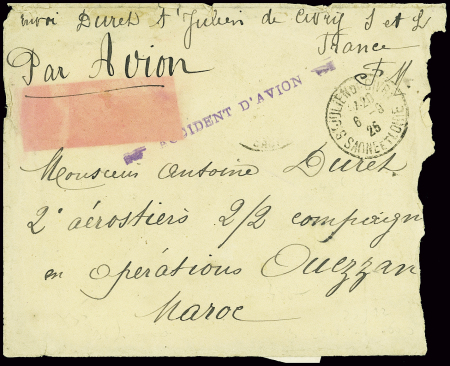 envoi Duret St Julien de Civry S et L
France
Par Avion
F. M.
ACCIDENT D'AVION
ST JULIEN DE CIVRY
6 - 3
25
SAONE ET LOIRE
Monsieur Antoine Duret
2e aérostiers 2/2 compaign
en opérations Ouezzan
Maroc